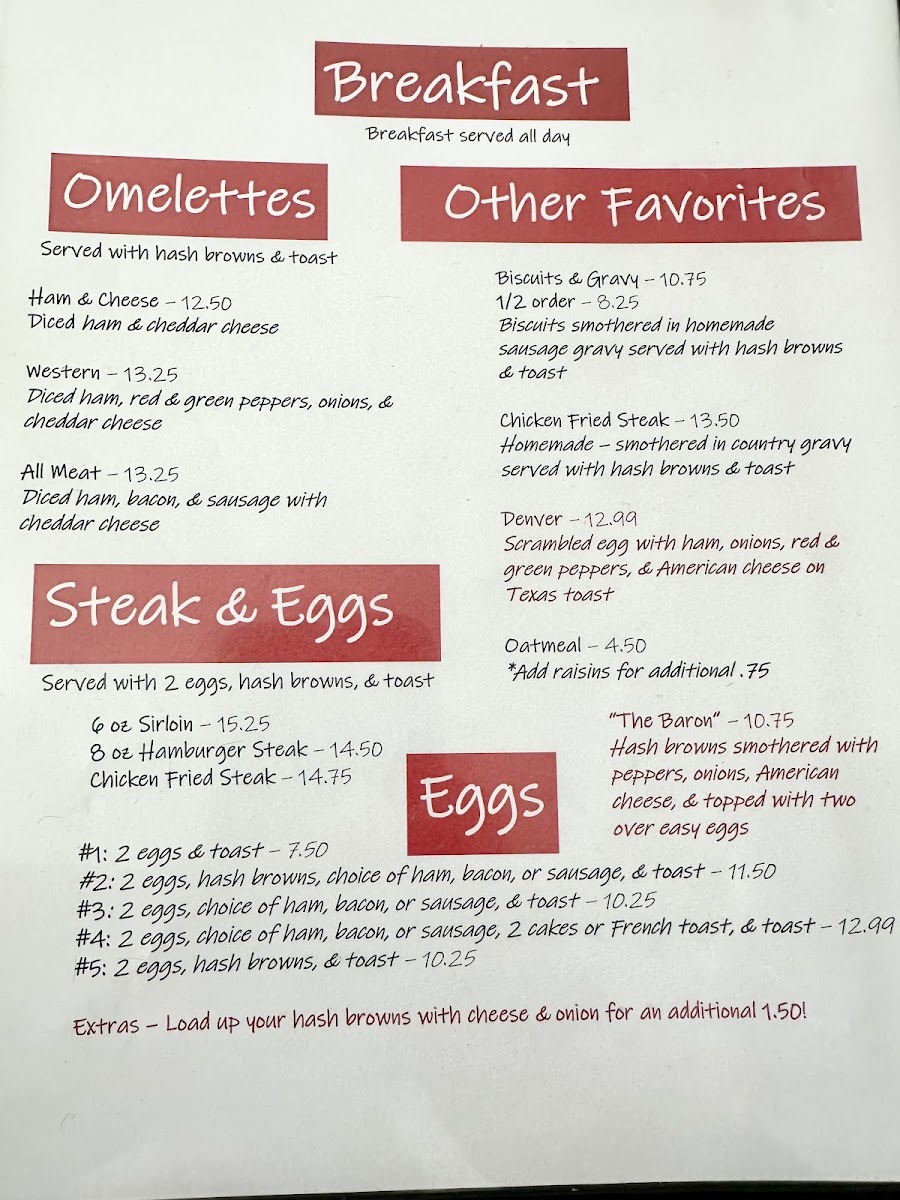 Breakfast
Breakfast served all day
Omelettes
Served with hash browns & toast
Ham & Cheese – 12.50
Diced ham & cheddar cheese
Western – 13.25
Diced ham, red & green peppers, onions, &
cheddar cheese
All Meat – 13.25
Diced ham, bacon, & sausage with
cheddar cheese
Other Favorites
Biscuits & Gravy – 10.75
1/2 order – 8.25
Biscuits smothered in homemade
sausage gravy served with hash browns
& toast
Chicken Fried Steak – 13.50
Homemade – smothered in country gravy
served with hash browns & toast
Denver – 12.99
Scrambled egg with ham, onions, red &
green peppers, & American cheese on
Texas toast
Oatmeal – 4.50
*Add raisins for additional .75
"The Baron" – 10.75
Hash browns smothered with
peppers, onions, American
cheese, & topped with two
over easy eggs
Steak & Eggs
Served with 2 eggs, hash browns, & toast
6 oz Sirloin – 15.25
8 oz Hamburger Steak – 14.50
Chicken Fried Steak – 14.75
Eggs
#1: 2 eggs & toast – 7.50
#2: 2 eggs, hash browns, choice of ham, bacon, or sausage, & toast – 11.50
#3: 2 eggs, choice of ham, bacon, or sausage, & toast – 10.25
#4: 2 eggs, choice of ham, bacon, or sausage, 2 cakes or French toast, & toast – 12.99
#5: 2 eggs, hash browns, & toast – 10.25
Extras – Load up your hash browns with cheese & onion for an additional 1.50!